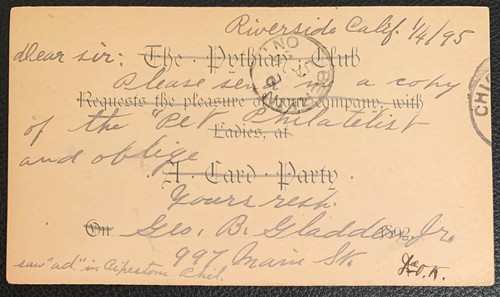 Riverside Calif. 1/4/95
Dear sir:
The Pythian Club
Please send me a copy
Requests the pleasure of your company, with
of the "Pet Philatelist
Ladies, at
and oblige
A Card Party
Yours resp.
On Geo. B. Gladden, Jr. 189
997 Main St.
saw "ad." in Phil.
CHIC